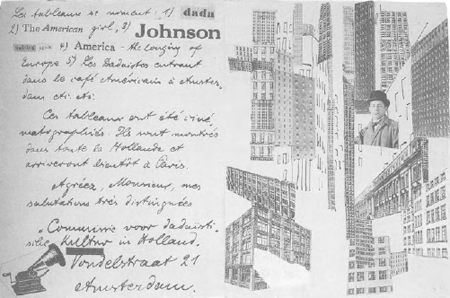 Les tableaux se nomment 1) dada
2) The American girl, 3) Johnson
4) America - the longing of
Europe 5) Les Dadaistes entrant
dans le café Américain à Amster-
dam etc. etc.
Ces tableaux ont été ciné-
matographiés. Ils sont montrés
dans toute la Hollande et
arriveront bientôt à Paris.
Agréez, Monsieur, mes
salutations très distinguées
"Commissie voor dadaisti-
sche Kultur in Holland.
Vondelstraat 21
Amsterdam.